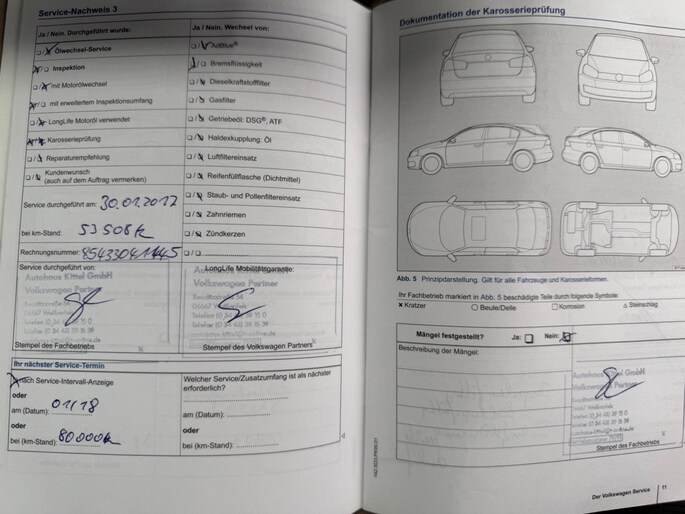 Service-Nachweis 3
Ja / Nein. Durchgeführt wurde:
Ölwechsel-Service
Inspektion
mit Motorölwechsel
mit erweitertem Inspektionsumfang
LongLife Motoröl verwendet
Karosserieprüfung
Reparaturempfehlung
Kundenwunsch
(auch auf dem Auftrag vermerken)
Service durchgeführt am: 30.01.2017
bei km-Stand: 53508k
Rechnungsnummer:
Service durchgeführt von:
Autohaus Kittel GmbH
Volkswagen Partner
Stempel des Fachbetriebs
Ja / Nein. Wechsel von:
AdBlue®
Bremsflüssigkeit
Dieselkraftstofffilter
Gasfilter
Getriebeöl: DSG®, ATF
Haldexkupplung: Öl
Luftfiltereinsatz
Reifenfüllflasche (Dichtmittel)
Staub- und Pollenfiltereinsatz
Zahnriemen
Zündkerzen
LongLife Mobilitätsgarantie:
Autohaus Kittel GmbH
Volkswagen Partner
Stempel des Volkswagen Partners
Ihr nächster Service-Termin
nach Service-Intervall-Anzeige
oder
am (Datum): 01/18
oder
bei (km-Stand): 80000k
Welcher Service/Zusatzumfang ist als nächster
erforderlich?
am (Datum):
oder
bei (km-Stand):
Dokumentation der Karosserieprüfung
Abb. 5 Prinzipdarstellung. Gilt für alle Fahrzeuge und Karosserieformen.
Ihr Fachbetrieb markiert in Abb. 5 beschädigte Teile durch folgende Symbole:
× Kratzer ○ Beule/Delle □ Korrosion △ Steinschlag
Mängel festgestellt? Ja: Nein:
Beschreibung der Mängel:
Autohaus Kittel GmbH
Volkswagen Partner
Stempel des Fachbetriebs
Der Volkswagen Service 11